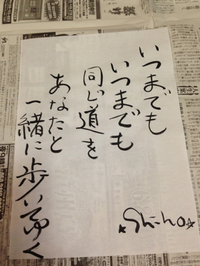 いつまでも
いつまでも
同じ道を
あなたと
一緒に歩いてゆく
☆Shiho☆